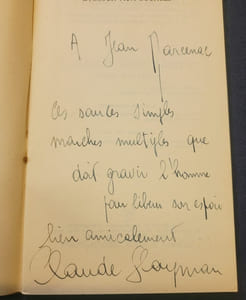 A Jean Marcenac
ces simples
marches multiples que
doit gravir l'homme
pour son espoir
bien amicalement
Claude